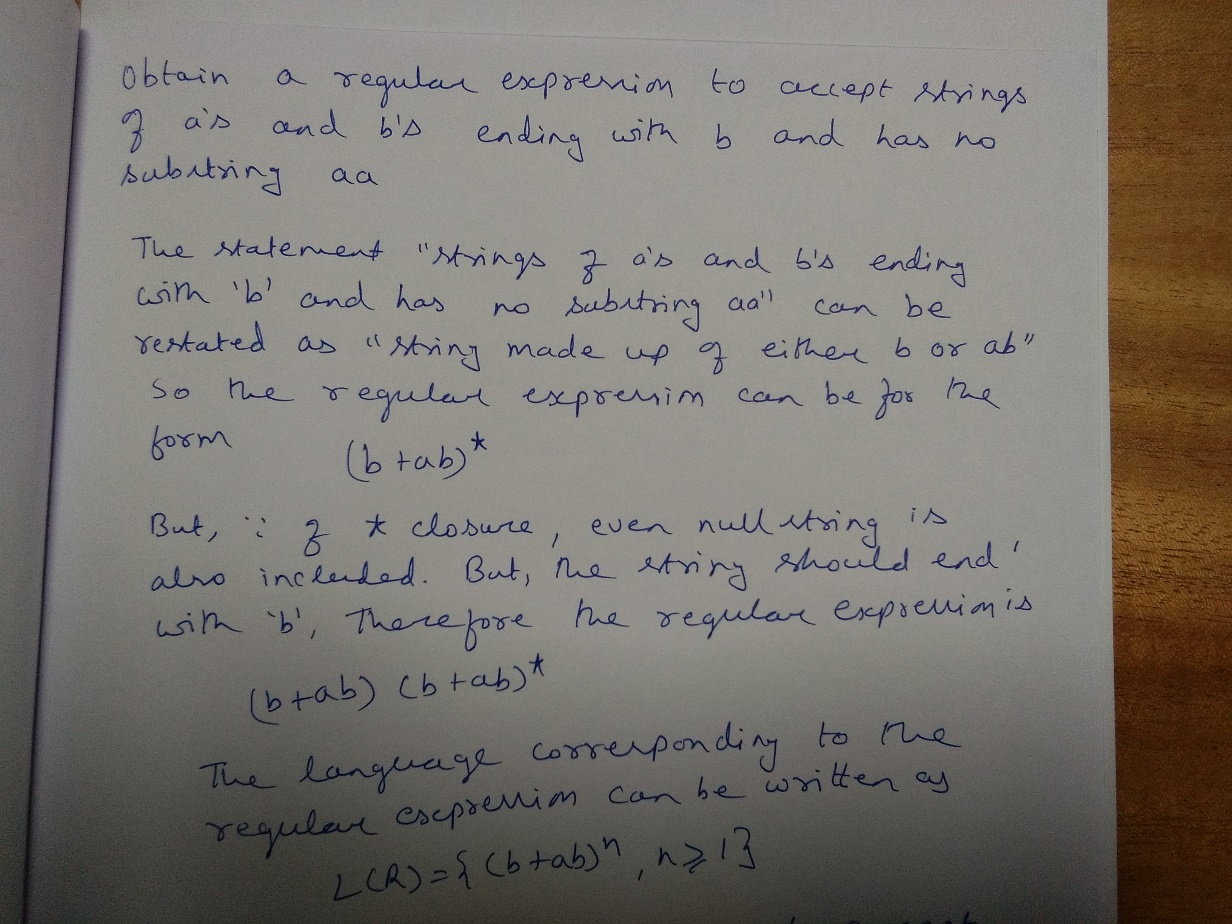 Obtain a regular expression to accept strings
of a's and b's ending with b and has no
substring aa
The statement "strings of a's and b's ending
with 'b' and has no substring aa" can be
restated as "string made up of either b or ab"
So the regular expression can be for the
form (b+ab)*
But, ∵ of * closure, even null string is
also included. But, the string should end
with 'b', Therefore the regular expression is
(b+ab) (b+ab)*
The language corresponding to the
regular expression can be written as
L(R)={(b+ab)ⁿ, n≥1}